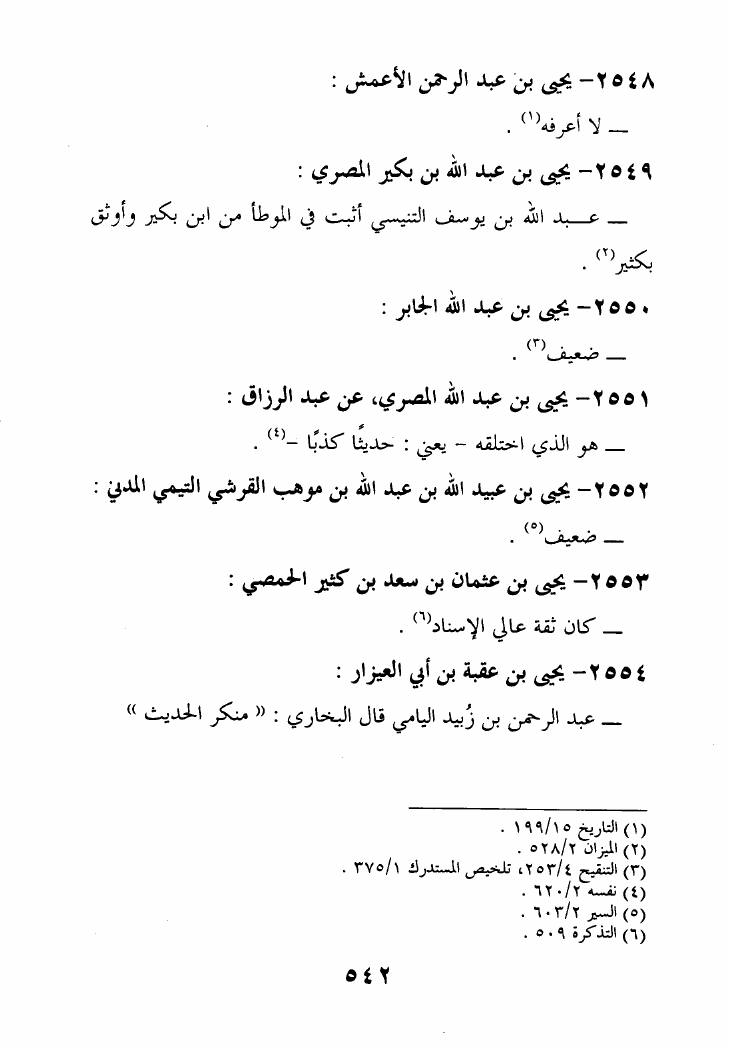 ٢٥٤٨- يحيى بن عبد الرحمن الأعمش :
ــ لا أعرفه(١) .
٢٥٤٩- يحيى بن عبد الله بن بكير المصري :
ــ عـــبد الله بن يوسف التنيسي أثبت في الموطأ من ابن بكير وأوثق
بكثير(٢) .
٢٥٥٠- يحيى بن عبد الله الجابر :
ــ ضعيف(٣) .
٢٥٥١- يحيى بن عبد الله المصري، عن عبد الرزاق :
ــ هو الذي اختلقه - يعني : حديثًا كذبًا -(٤) .
٢٥٥٢- يحيى بن عبيد الله بن عبد الله بن موهب القرشي التيمي المدني :
ــ ضعيف(٥) .
٢٥٥٣- يحيى بن عثمان بن سعد بن كثير الحمصي :
ــ كان ثقة عالي الإسناد(٦) .
٢٥٥٤- يحيى بن عقبة بن أبي العيزار :
ــ عبد الرحمن بن زُبيد اليامي قال البخاري : « منكر الحديث »
(١) التاريخ ١٩٩/١٥ .
(٢) الميزان ٥٢٨/٢ .
(٣) التنقيح ٢٥٣/٤، تلخيص المستدرك ٣٧٥/١ .
(٤) نفسه ٦٢٠/٢ .
(٥) السير ٦٠٣/٢ .
(٦) التذكرة ٥٠٩ .
٥٤٢